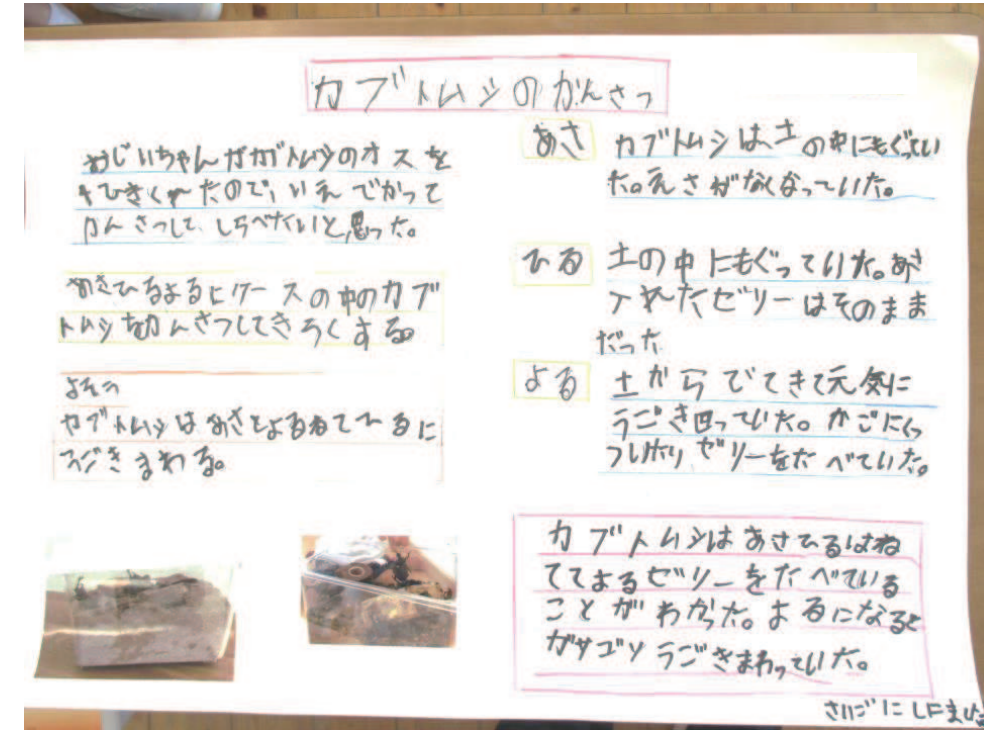 カブトムシのかんさつ
おじいちゃんがカブトムシのオスを
くれたので、いえでかって
かんさつして、しらべたいと思った。
あさひるよるにケースの中のカブ
トムシをかんさつしてきろくする。
よそう
カブトムシはあさとよるねてひるに
うごきまわる。
あさ
カブトムシは土の中にもぐってい
た。えさがなくなっていた。
ひる
土の中にもぐっていた。あさ
入れたゼリーはそのまま
だった
よる
土からでてきて元気に
うごき回っていた。かごにくっ
ついたりゼリーをたべていた。
カブトムシはあさひるはね
ててよるゼリーをたべている
ことがわかった。よるになると
ガサゴソうごきまわっていた。
さいごに